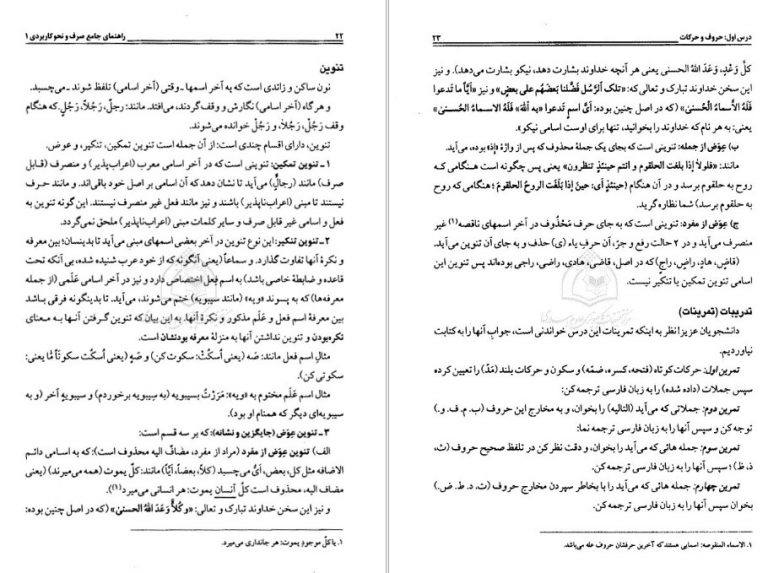 ۲۲ راهنمای جامع صرف و نحو کاربردی ۱
تنوین
نون ساکن و زائدی است که به آخر اسمها ـ وقتی (آخر اسامی) تلفظ شوند ـ می‌چسبد.
و هرگاه (آخر اسامی) نگارش و وقف گردند، می‌افتد. مانند: رجلٌ، رَجُلاً، رَجُلٍ. که هنگام
وقف رَجُلْ، رَجُلاْ، و رَجُلْ خوانده می‌شوند.
تنوین، دارای اقسام چندی است: از آن جمله است تنوین تمکین، تنکیر، و عوض.
۱ ـ تنوین تمکین: تنوینی است که در آخر اسامی معرب (اعراب‌پذیر) و منصرف (قابل
صرف) مانند (رجالٌ) می‌آید تا نشان دهد که آن اسامی بر اصل خود باقی‌اند. و مانند حرف
نیستند تا مبنی (اعراب‌ناپذیر) باشند و نیز مانند فعل غیر منصرف نیستند. این گونه تنوین به
فعل و اسامی غیر قابل صرف و سایر کلمات مبنی (اعراب‌ناپذیر) ملحق نمی‌گردد.
۲ ـ تنوین تنکیر: این نوع تنوین در آخر بعضی اسمهای مبنی می‌آید تا بدینسان؛ بین معرفه
و نکرۀ آنها تفاوت گذارد. و سماعاً (یعنی آنگونه که از خود عرب شنیده شده، بی آنکه تحت
قاعده و ضابطۀ خاصی باشد) به اسم فعل اختصاص دارد و نیز در آخر اسامی عَلَمی (از جمله
معرفه‌ها) که به پسوند «ویه» (مانند سیبویه) ختم می‌شوند، می‌آید. تا بدینگونه فرقی باشد
بین معرفۀ اسم فعل و عَلَم مذکور و نکرۀ آنها. به این بیان که تنوین گرفتن آنها به معنای
نکره‌بودن و تنوین نداشتن آنها به منزلۀ معرفه بودنشان است.
مثالِ اسم فعل مانند: صَه (یعنی اُسکُتْ: سکوت کن) و صَهٍ (یعنی اُسکُت سکوتاً مّا یعنی:
سکوتی کن).
مثال اسم عَلَم مختوم به «ویه»: مَرَرْتُ بسیبویه (به سیبویه برخوردم) و سیبویهٍ آخر (و به
سیبویه‌ای دیگر که همنام او بود).
۳ ـ تنوین عِوَض (جایگزین و نشانه): که بر سه قسم است:
الف) تنوین عِوَض از مفرد (مراد از مفرد، مضافٌ الیه محذوف است): که به اسامی دائم
الاضافه مثل کل، بعض، أیّ می‌چسبد (کلاً، بعضاً، أیّاً) مانند: کلٌ یموت (همه می‌میرند) (یعنی
مضاف الیه، محذوف است کلّ اَنسانٍ یموت: هر انسانی می‌میرد(۱)).
و نیز این سخن خداوند تبارک و تعالی: «وَ کُلّاً وَعَدَ اللهُ الحسنیٰ» (که در اصل چنین بوده:
۱. یا کلّ موجودٍ یموت: هر جانداری می‌میرد.
درس اول: حروف و حرکات ۲۳
کلَّ وَعْدٍ، وَعَدَ اللهُ الحسنی یعنی هر آنچه خداوند بشارت دهد، نیکو بشارت می‌دهد). و نیز
این سخن خداوند تبارک و تعالی که: «تلک الرّسُلُ فَضَّلنا بَعضَهُم علی بعضٍ» و نیز «أیّاً ما تَدعوا
فَلَهُ الأسماءُ الْحُسنیٰ» (که در اصل چنین بوده: أیَّ اسمٍ تَدعوا «به الله» فَلَهُ الاسماءُ الحُسنیٰ
یعنی: به هر نام که خداوند را بخوانید، تنها برای اوست اسامی نیکو).
ب) عِوَض از جمله: تنوینی است که بجای یک جملۀ محذوف که پس از واژۀ إذ بوده، می‌آید.
مانند: «فلولا إذا بلغت الحلقوم و أنتم حینئذٍ تنظرون» یعنی پس چگونه است هنگامی که
روح به حلقوم برسد و در آن هنگام (حینئذٍ أی: حینَ إذا بَلَغَت الروحُ الحلقومَ؛ هنگامی که روح
به حلقوم برسد) شما نظاره گرید.
ج) عِوَض از مفرد: تنوینی است که به جای حرف مَحْذُوف در آخر اسمهای ناقصه(۱) غیر
منصرف می‌آید و در ۲ حالت رفع و جرّ، آن حرفِ یاء (ی) حذف و به جای آن تنوین می‌آید.
(قاضٍ، هادٍ، راضٍ، راجٍ) که در اصل، قاضی، هادی، راضی، راجی بوده‌اند پس تنوین این
اسامی تنوین تمکین یا تنکیر نیست.
تدریبات (تمرینات)
دانشجویان عزیز! نظر به اینکه تمرینات این درس خواندنی است، جواب آنها را به کتابت
نیاوردیم.
تمرین اول: حرکات کوتاه (فتحه، کسره، ضمّه) و سکون و حرکات بلند (مَدّ) را تعیین کرده
سپس جملات (داده شده) را به زبان فارسی ترجمه کن:
تمرین دوم: جملاتی که می‌آید (التالیه) را بخوان، و به مخارج این حروف (ب. م. ف. و.)
توجه کن و سپس آنها را به زبان فارسی ترجمه نما:
تمرین سوم: جمله هائی که می‌آید را بخوان، و دقت نظر کن در تلفظ صحیح حروف (ث،
ذ، ظ)؛ سپس آنها را به زبان فارسی ترجمه کن.
تمرین چهارم: جمله هائی که می‌آید را با بخاطر سپردن مخارج حروف (ت. د. ط. ض.)
بخوان سپس آنها را به زبان فارسی ترجمه کن.
۱. الاسماء المنقوصه: اسمایی هستند که آخرین حرفشان حروف عله می‌باشد.